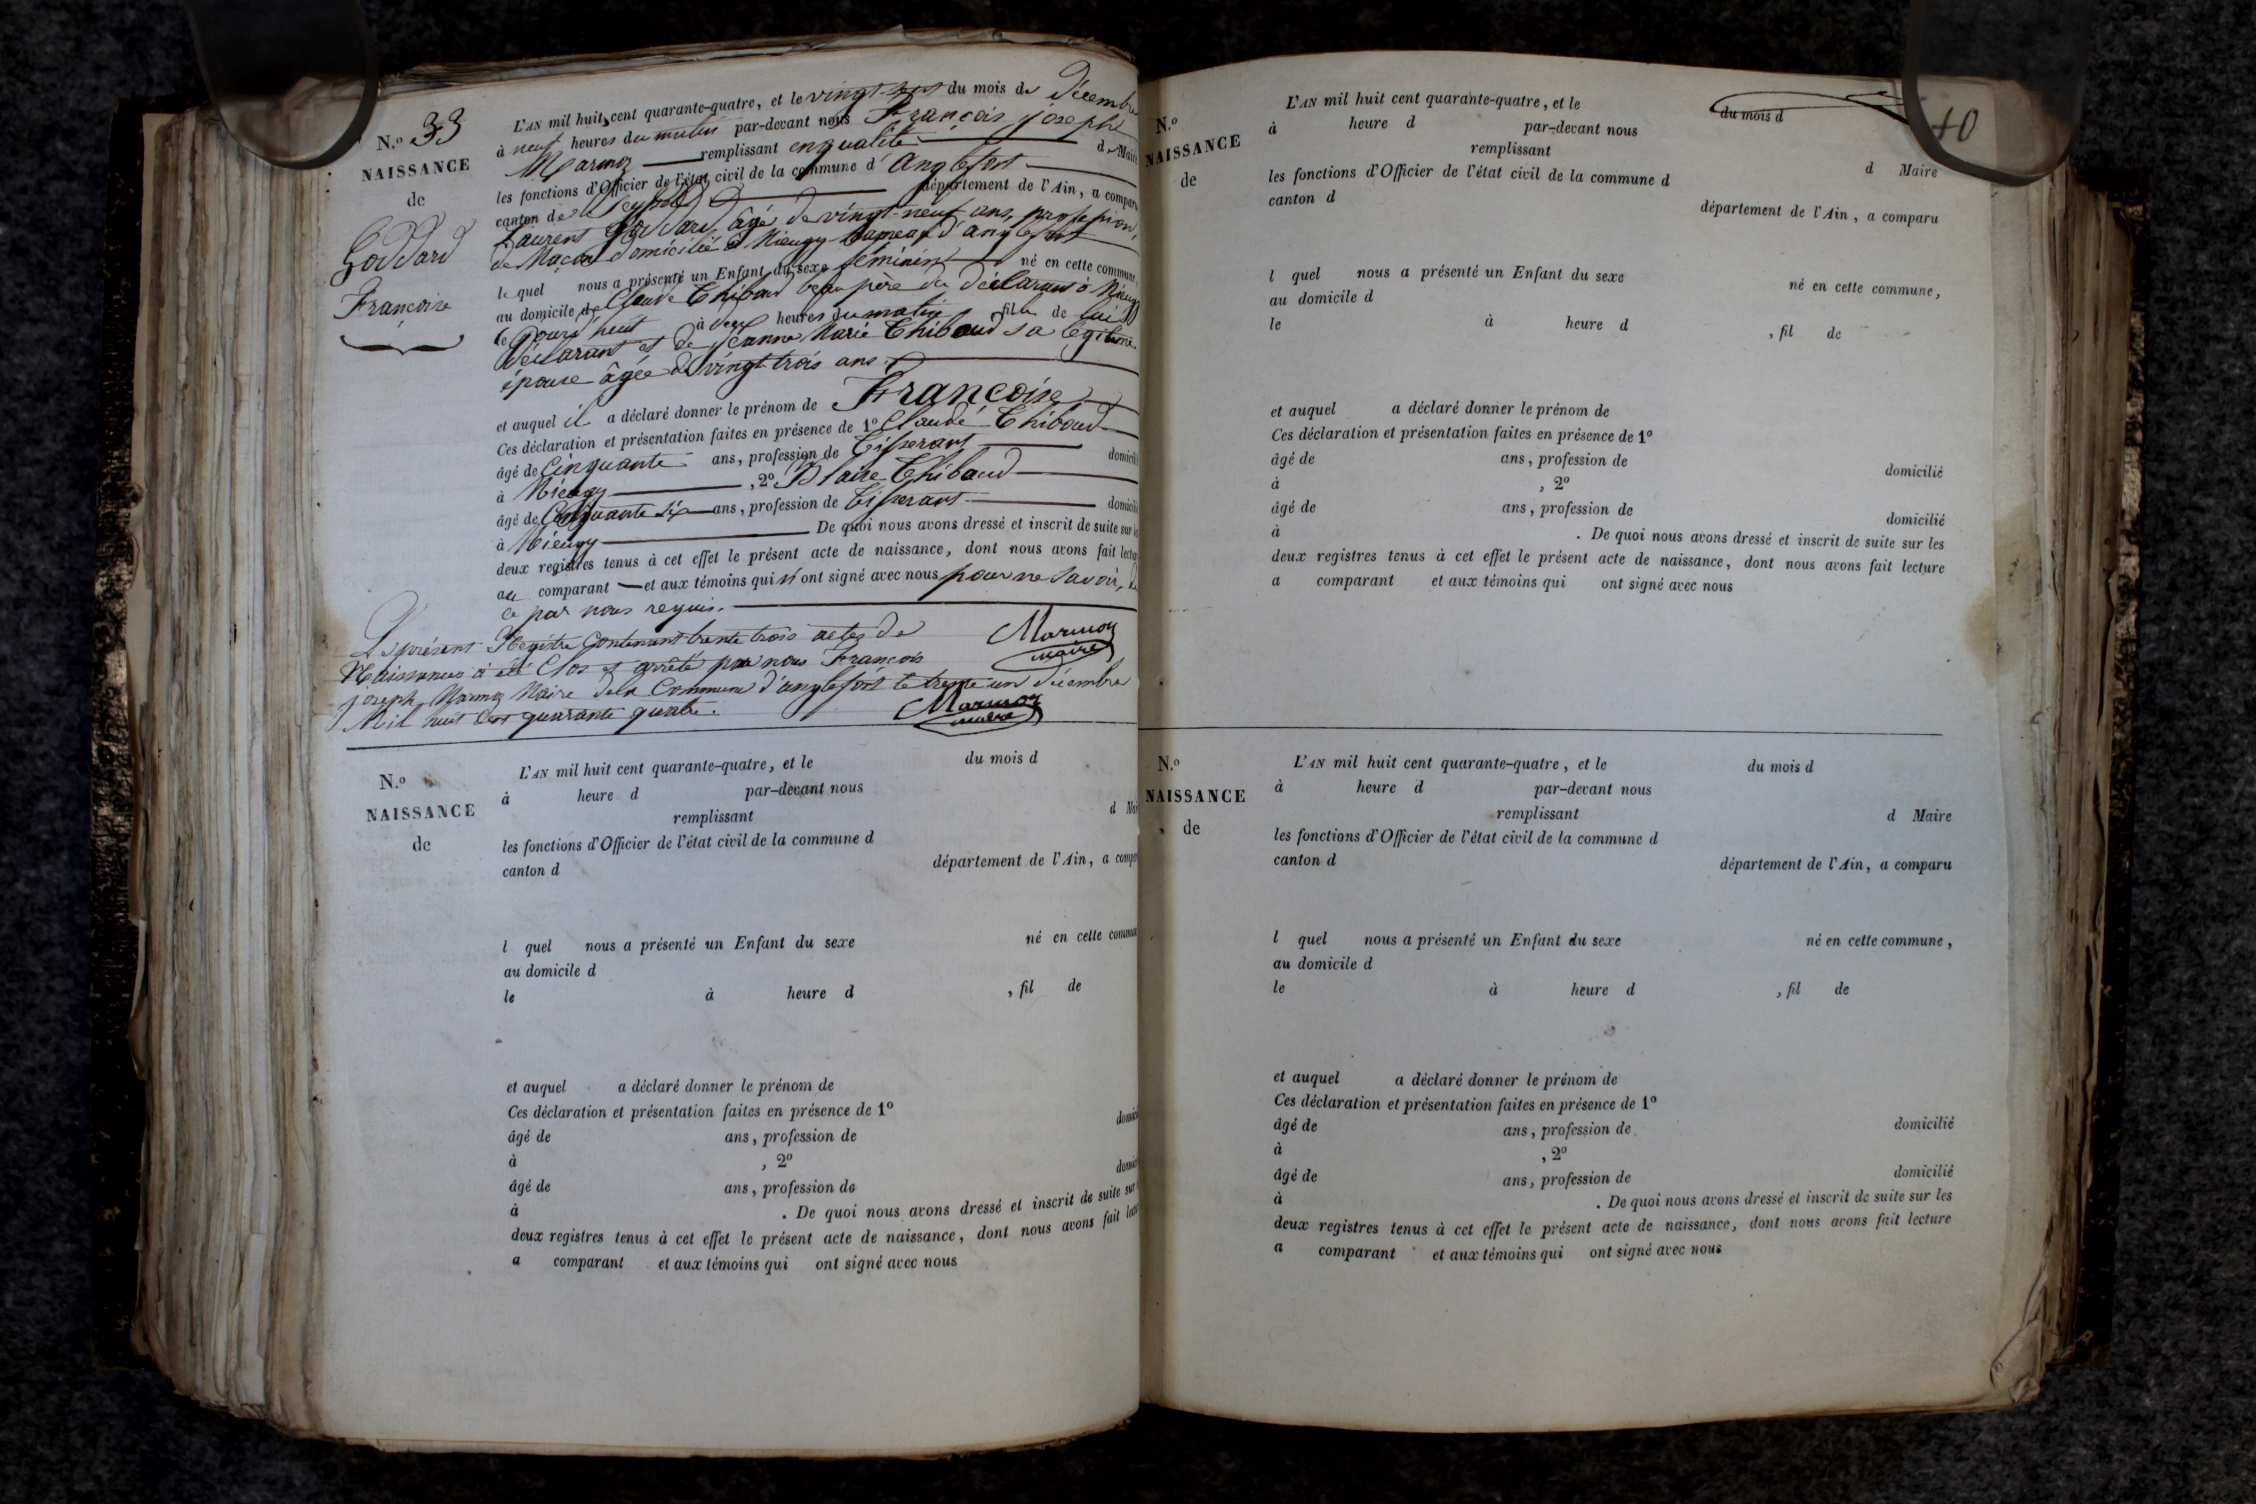 N.º 33
NAISSANCE
de
Goddard
Françoise
L'AN mil huit cent quarante-quatre, et le vingt du mois de décembre
à neuf heures du matin par-devant nous François joseph
Marmoz remplissant en qualité de Maire
les fonctions d'Officier de l'état civil de la commune d'Anglefort
canton de Seyssel département de l'Ain, a comparu
Laurent Goddard, âgé de vingt-neuf ans, profession,
de Maçon domicilié à hameau d'anglefort
le quel nous a présenté un Enfant du sexe féminin né en cette commune,
au domicile de Claude Thibaud beau père du déclarant à
le jour d'huit à deux heures du matin, fille de lui
déclarant et de jéanne Marie Thibaud sa légitime
épouse âgée de vingt trois ans.
et auquel il a déclaré donner le prénom de Françoise
Ces déclaration et présentation faites en présence de 1º Claude Thibaud
âgé de Cinquante ans, profession de Tisserant domicilié
à , 2º Blaise Thibaud
âgé de Cinquante six ans, profession de Tisserant domicilié
à De quoi nous avons dressé et inscrit de suite sur les
deux registres tenus à cet effet le présent acte de naissance, dont nous avons fait lecture
au comparant et aux témoins qui n'ont signé avec nous pour ne savoir, de
ce par nous requis.
Le présent Régistre contenant trente trois actes de
Naissances à été Clos et arrêté par nous François
joseph Marmoz Maire de la Commune d'anglefort le trente un décembre
Mil huit cent quarante quatre.
Marmoz
maire
Marmoz
maire
N.º
NAISSANCE
de
L'AN mil huit cent quarante-quatre, et le du mois d
à heure d par-devant nous
remplissant d Maire
les fonctions d'Officier de l'état civil de la commune d
canton d département de l'Ain, a comparu
l quel nous a présenté un Enfant du sexe né en cette commune
au domicile d
le à heure d , fil de
et auquel a déclaré donner le prénom de
Ces déclaration et présentation faites en présence de 1º
âgé de ans, profession de domicilié
à , 2º
âgé de ans, profession de domicilié
à . De quoi nous avons dressé et inscrit de suite sur
deux registres tenus à cet effet le présent acte de naissance, dont nous avons fait lecture
a comparant et aux témoins qui ont signé avec nous
40
N.º
NAISSANCE
de
L'AN mil huit cent quarante-quatre, et le du mois d
à heure d par-devant nous
remplissant d Maire
les fonctions d'Officier de l'état civil de la commune d
canton d département de l'Ain, a comparu
l quel nous a présenté un Enfant du sexe né en cette commune,
au domicile d
le à heure d , fil de
et auquel a déclaré donner le prénom de
Ces déclaration et présentation faites en présence de 1º
âgé de ans, profession de domicilié
à , 2º
âgé de ans, profession de domicilié
à . De quoi nous avons dressé et inscrit de suite sur les
deux registres tenus à cet effet le présent acte de naissance, dont nous avons fait lecture
a comparant et aux témoins qui ont signé avec nous
N.º
NAISSANCE
de
L'AN mil huit cent quarante-quatre, et le du mois d
à heure d par-devant nous
remplissant d Maire
les fonctions d'Officier de l'état civil de la commune d
canton d département de l'Ain, a comparu
l quel nous a présenté un Enfant du sexe né en cette commune,
au domicile d
le à heure d , fil de
et auquel a déclaré donner le prénom de
Ces déclaration et présentation faites en présence de 1º
âgé de ans, profession de domicilié
à , 2º
âgé de ans, profession de domicilié
à . De quoi nous avons dressé et inscrit de suite sur les
deux registres tenus à cet effet le présent acte de naissance, dont nous avons fait lecture
a comparant et aux témoins qui ont signé avec nous